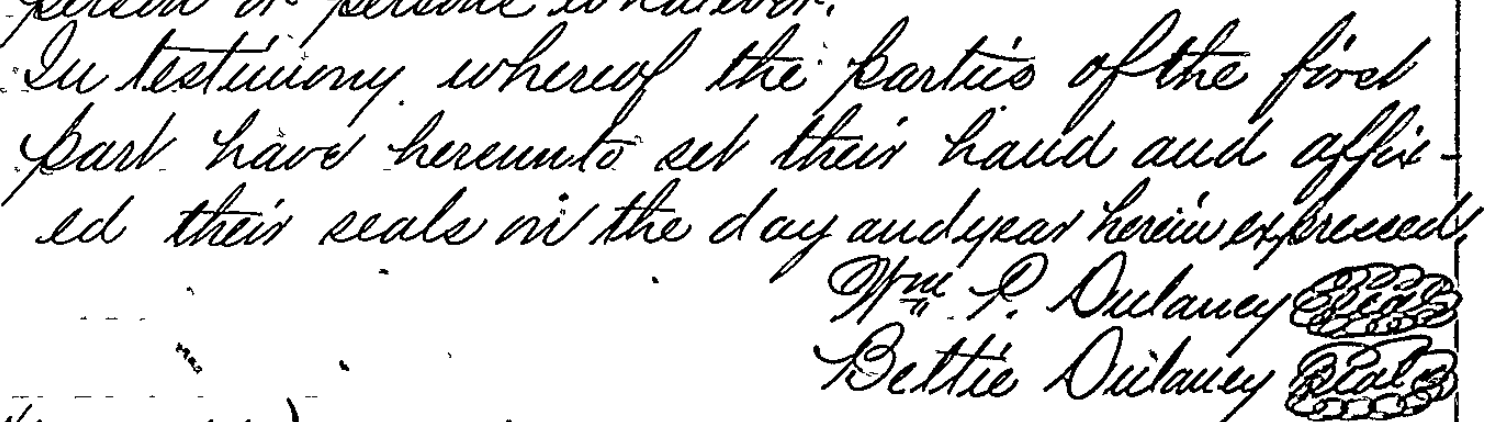 person or persons whatever.
In testimony whereof the parties of the first
part have hereunto set their hand and affix-
ed their seals on the day and year herein expressed.
Wm P. Dulaney Seal
Bettie Dulaney Seal